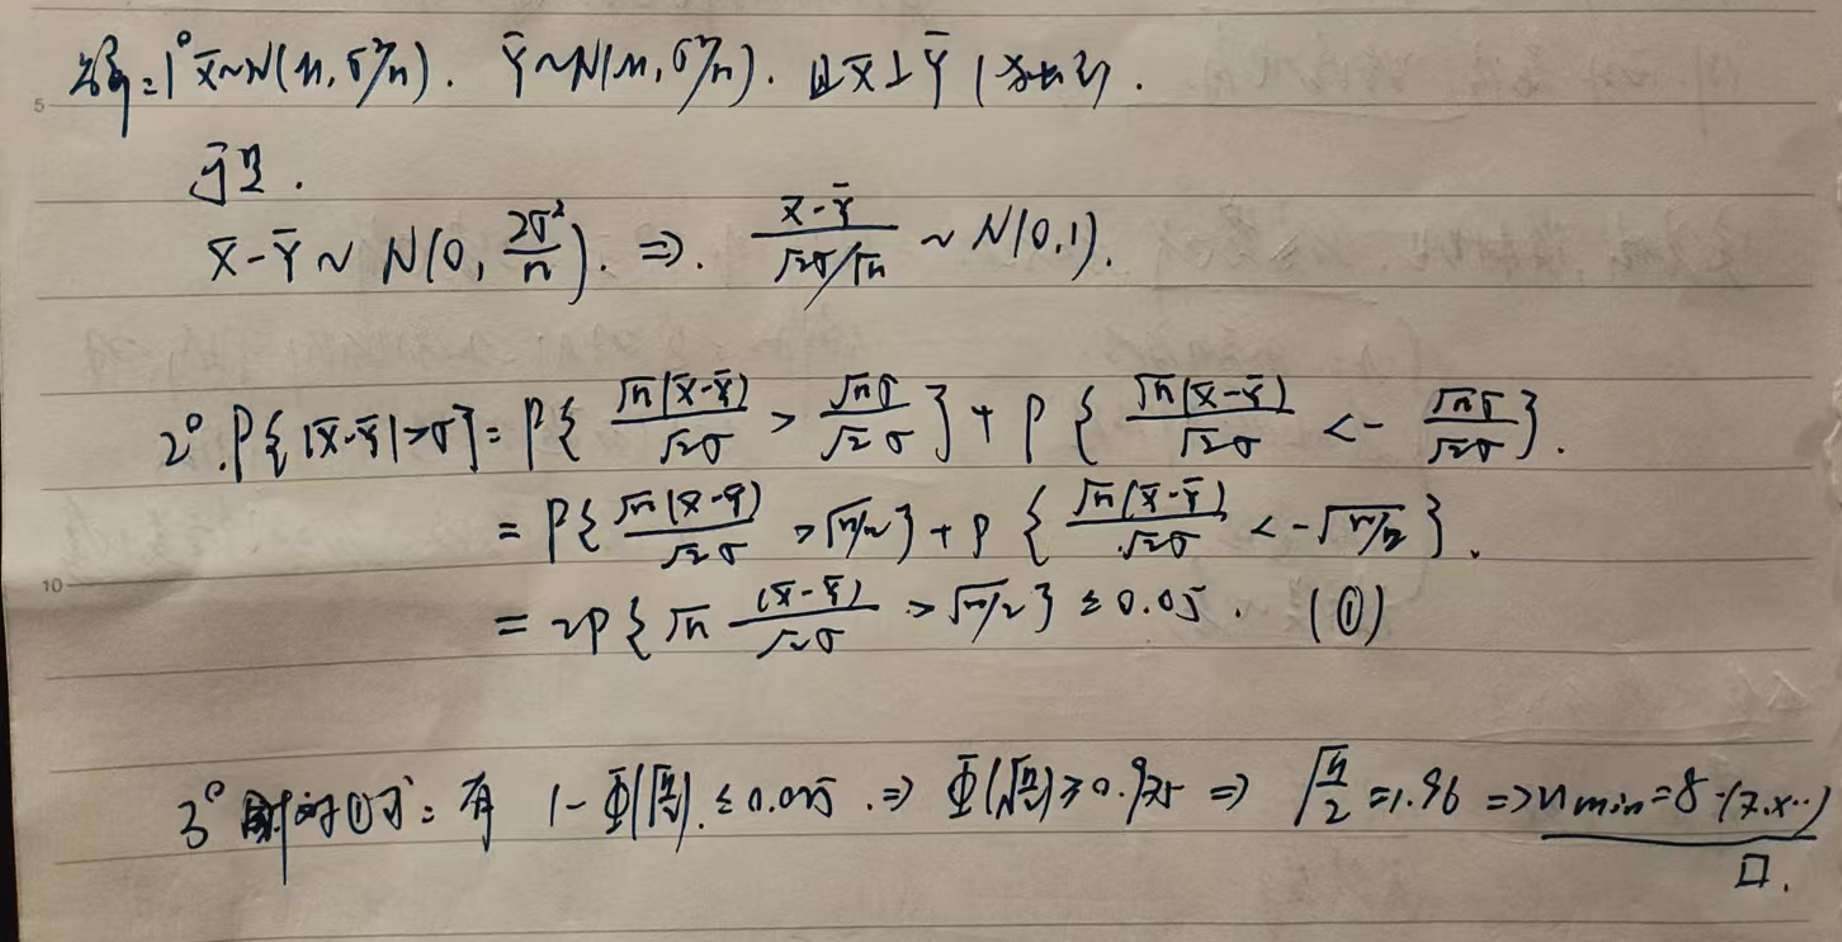 解：1° X̄~N(μ, σ²/n). Ȳ~N(μ, σ²/n). 且 X̄⊥Ȳ (独立).
5
于是.
X̄-Ȳ ~ N(0, 2σ²/n). ⇒. (X̄-Ȳ)/(√2σ/√n) ~ N(0,1).
2°. P{|X̄-Ȳ|>σ} = P{ √n(X̄-Ȳ)/√2σ > √nσ/√2σ } + P{ √n(X̄-Ȳ)/√2σ < - √nσ/√2σ }.
= P{ √n(X̄-Ȳ)/√2σ > √n/2 } + P{ √n(X̄-Ȳ)/√2σ < -√n/2 }.
10
= 2P{ √n (X̄-Ȳ)/√2σ > √n/2 } ≤ 0.05. (①)
3° 对①式: 有 1-Φ(√n/2) ≤ 0.025. ⇒ Φ(√n/2) ≥ 0.975 ⇒ √n/2 = 1.96 ⇒ n min = 8. (7.x··)
□.